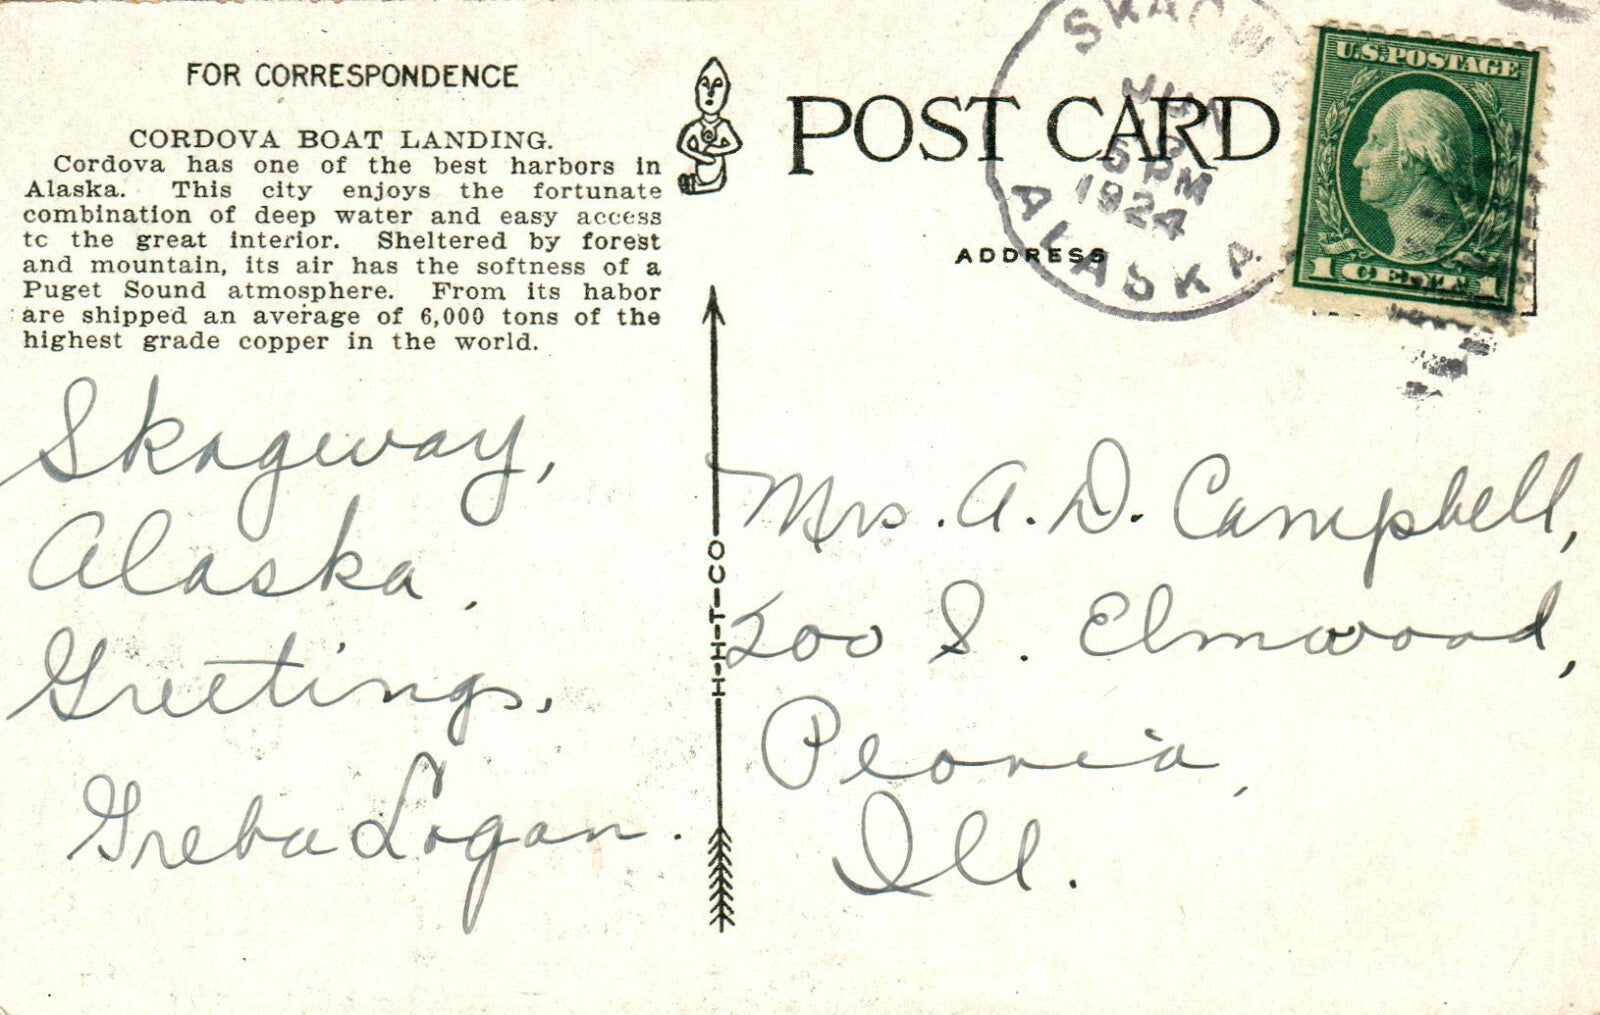 FOR CORRESPONDENCE
CORDOVA BOAT LANDING.
Cordova has one of the best harbors in
Alaska. This city enjoys the fortunate
combination of deep water and easy access
tc the great interior. Sheltered by forest
and mountain, its air has the softness of a
Puget Sound atmosphere. From its habor
are shipped an average of 6,000 tons of the
highest grade copper in the world.
Skagway,
Alaska.
Greetings.
Greba Logan.
H-H-T-CO
POST CARD
ADDRESS
SKAGWAY
5 PM
1924
ALASKA
U.S. POSTAGE
1 CENT 1
Mrs. A. D. Campbell,
200 S. Elmwood,
Peoria,
Ill.